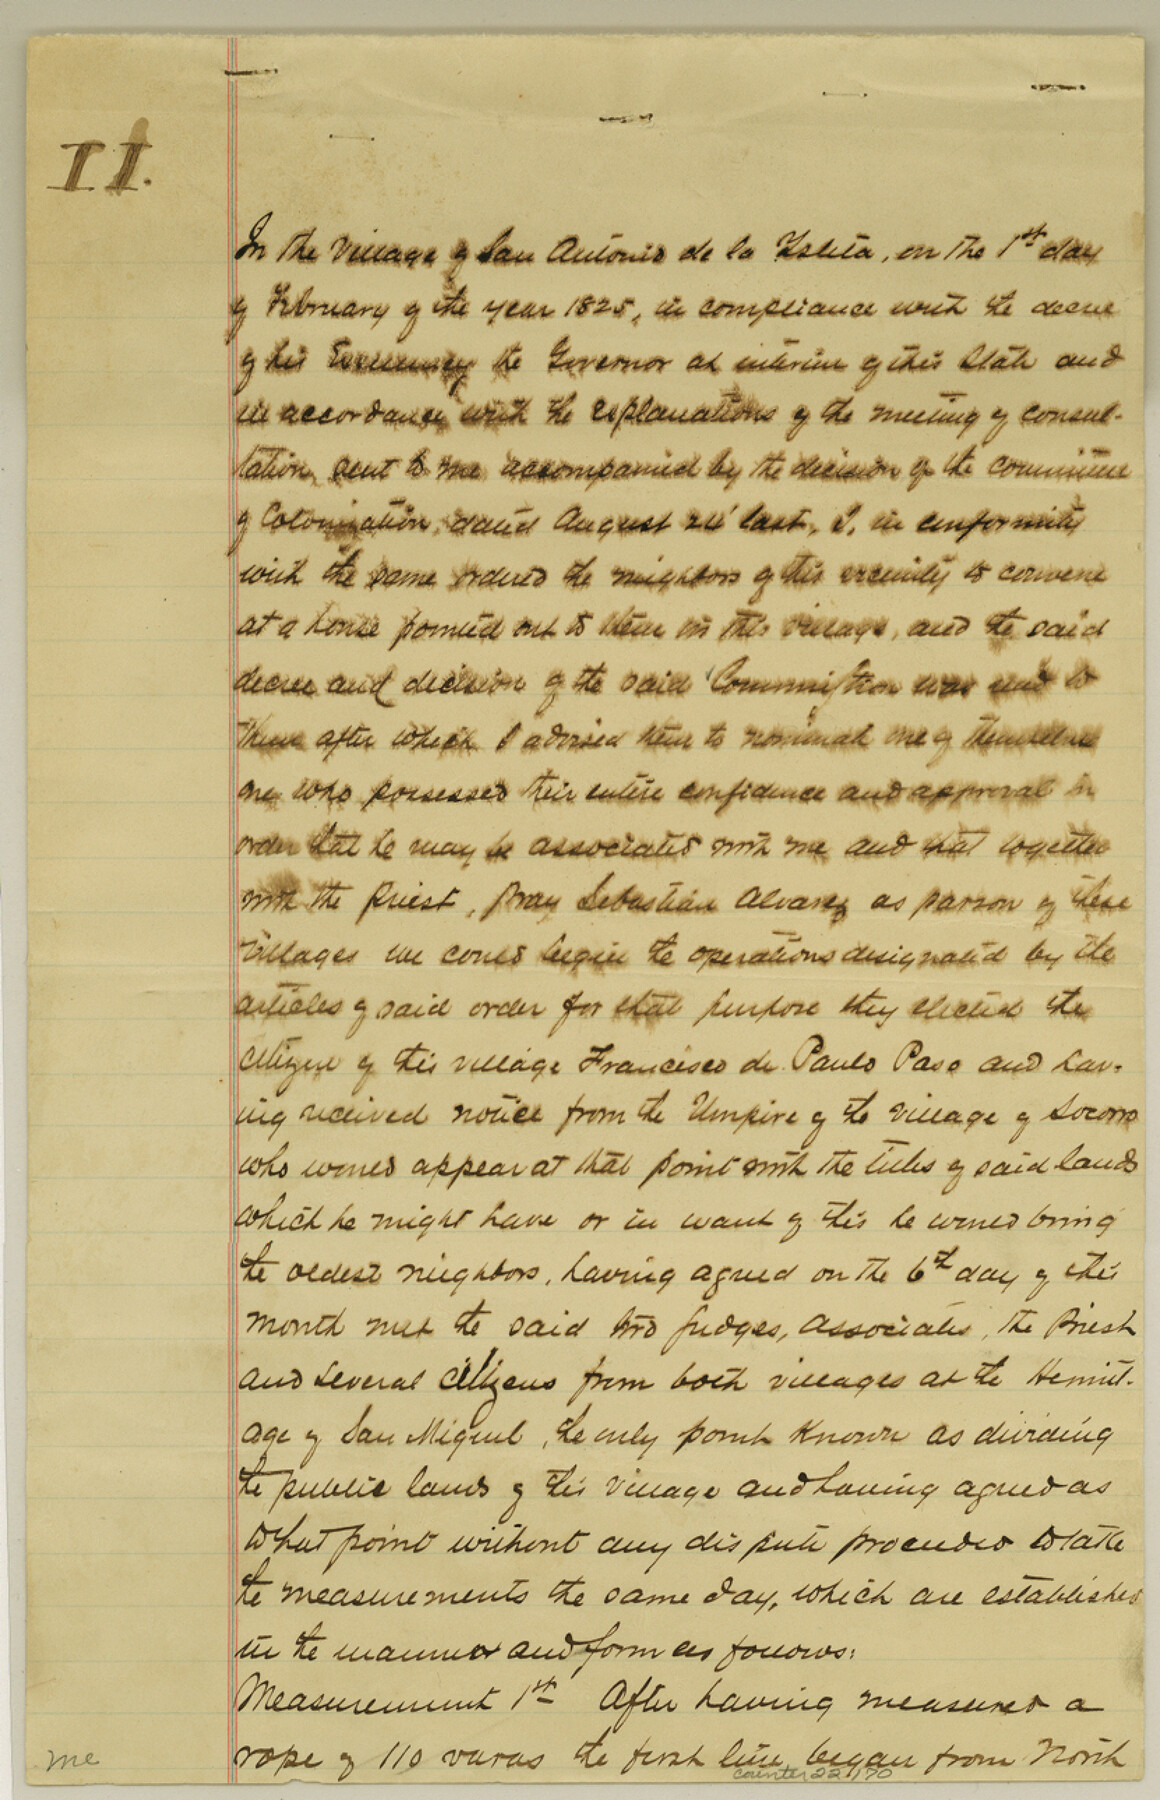 II.
In the Village of San Antonio de la Isleta, on the 1st day
of February of the year 1825, in compliance with the decree
of his Excellency the Governor at interim of this State and
in accordance with the explanations of the meeting of consul-
tation, sent to me accompanied by the decision of the committee
of Colonization, dated August 24 last, I, in conformity
with the same ordered the neighbors of this vicinity to convene
at a house pointed out to them in this village, and the said
decree and decision of the said Commission was read to
them after which I advised them to nominate one of themselves
one who possessed their entire confidence and approval in
order that he may be associated with me and that together
with the Priest, Fray Sebastian Alvarez as parson of these
Villages we could begin the operations designated by the
articles of said order for that purpose they elected the
Citizen of this village Francisco de Paulo Paso and hav-
ing received notice from the Umpire of the Village of Socorro
who would appear at that point with the titles of said lands
which he might have or in want of this he would bring
the oldest neighbors, having agreed on the 6th day of this
month met the said two judges, associates, the Priest
and several citizens from both villages at the Hermit-
age of San Miguel, the only point known as dividing
the public lands of this Village and having agreed as
what point without any dispute proceeded to take
the measurements the same day, which are established
in the manner and form as follows:
Measurement 1st After having measured a
rope of 110 varas the first line began from North
me
counter 22170